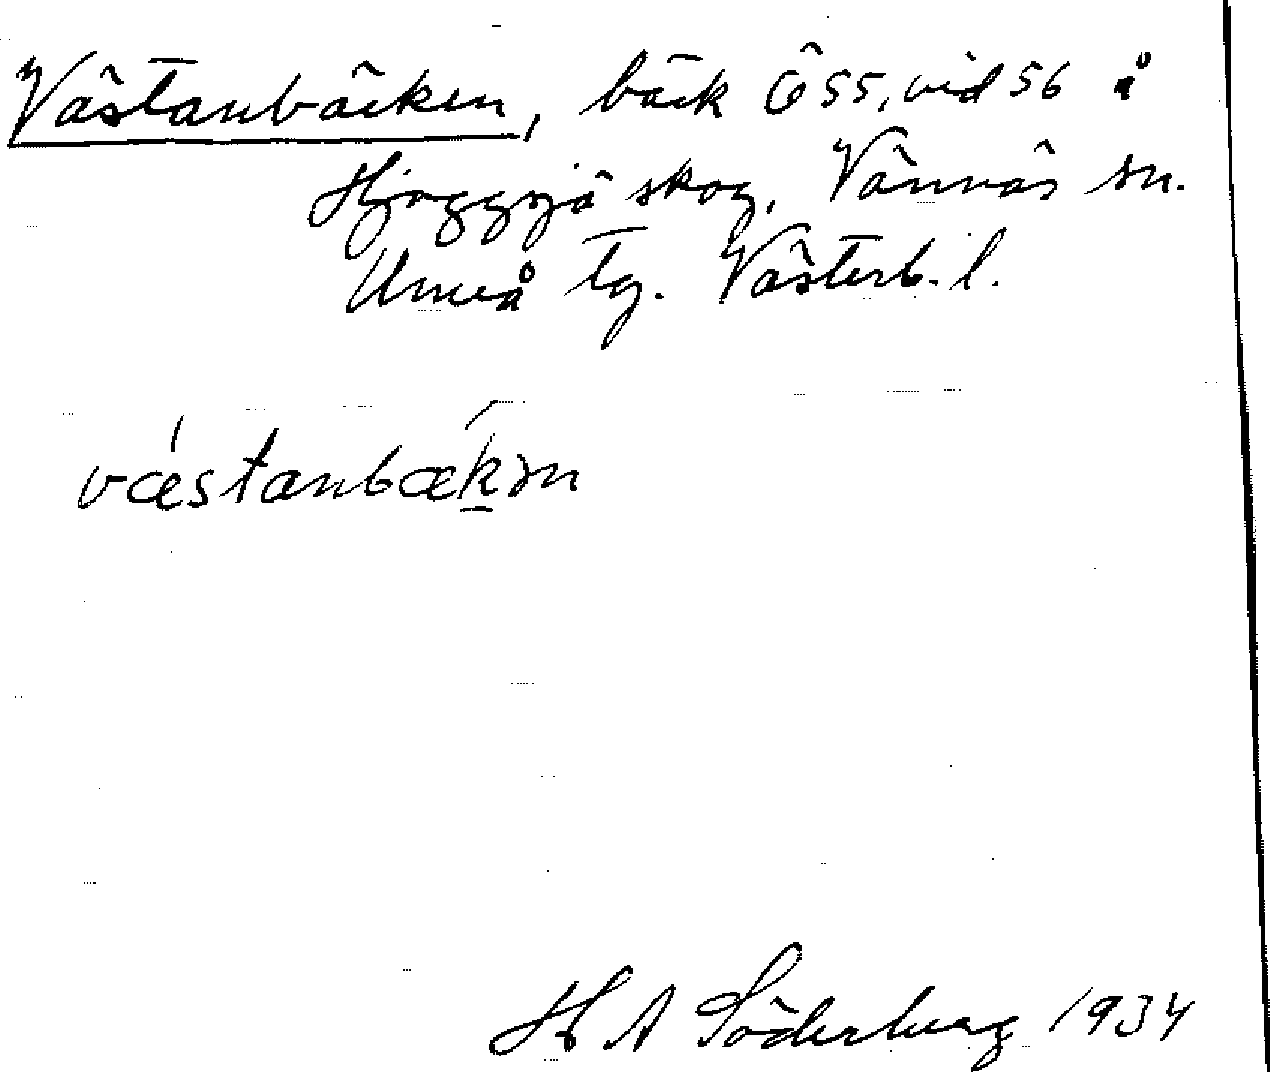 Västanbäcken, bäck Ö 55, vid 56 å
Hjoggsjö skog, Vännäs sn.
Umeå tg. Västerb. l.
væstanbækən
H A Söderberg 1934